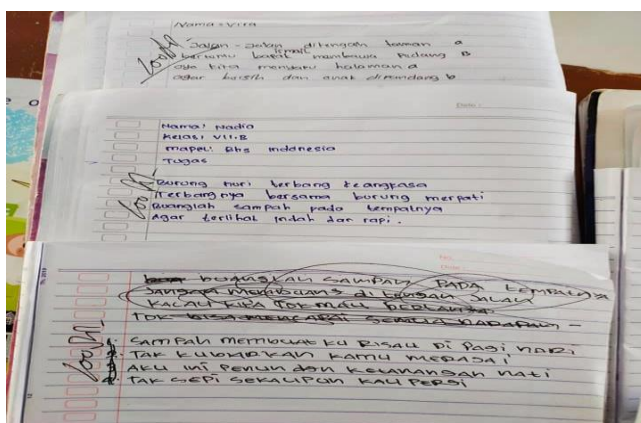 Nama: Vira
Jalan-jalan ditengah taman a
bertemu bapak ismail membawa Pidang B
ayo kita menyapu halaman a
agar bersih dan enak dipandang b
100
Date:
Nama: Nadia
Kelas: VII.B
mapel: Bhs indonesia
Tugas
Burung nuri terbang keangkasa
Terbangnya bersama burung merpati
Buanglah sampah pada tempatnya
Agar terlihat indah dan rapi.
100
No.
Date
BUANGLAH SAMPAH PADA TEMPATNYA
JANGAN MEMBUANG di tengah JALAN
KALAU KITA TAK MAU
TAK BISA SEMUA HARAPAN -
1. SAMPAH MEMBUAT KU RISAU DI PAGI HARI
2. TAK KUBIARKAN KAMU MERAJAI
3. AKU INI PENUH dan KETENANGAN HATI
4. TAK SEPI SEKALIPUN KAU PERGI
100